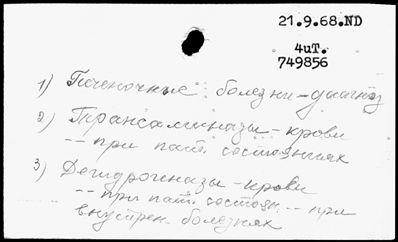 21.9.68.ND
4uT.
749856
1) Печеночные болезни-диагноз
2) Трансаминазы - крови
-- при пат. состояниях
3) Дегидрогеназы - крови
-- при пат. состоян. -- при
внутрен. болезнях